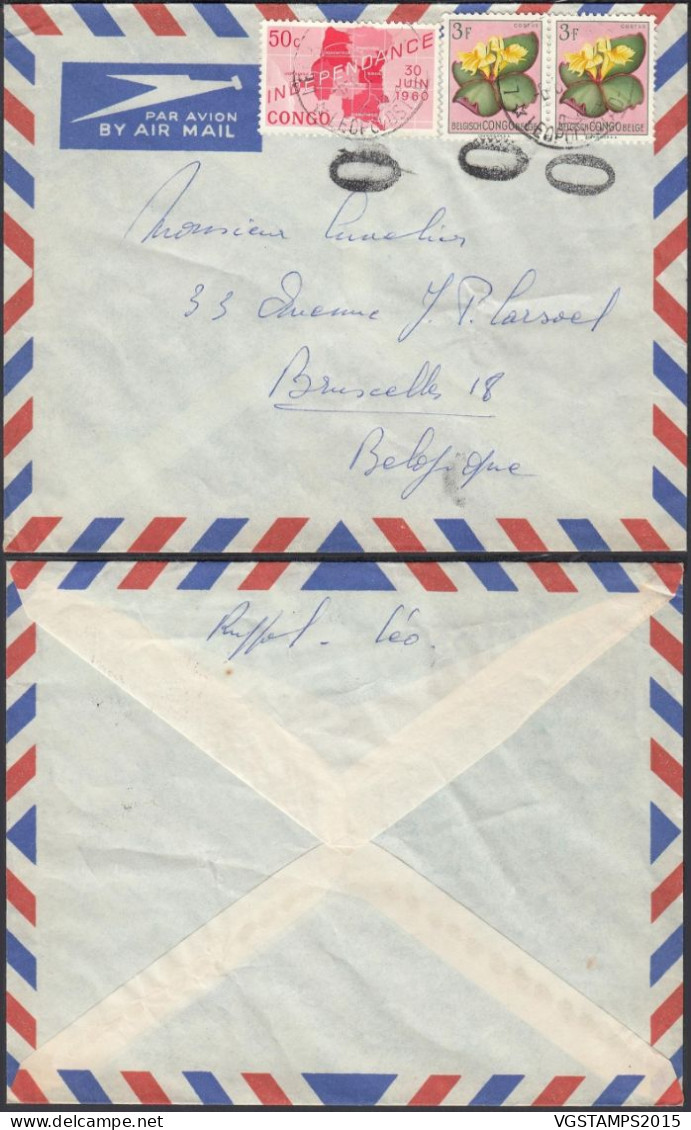 50c
INDEPENDANCE
30
JUIN
1960
CONGO
3F
COSTUS
BELGISCH CONGO BELGE
3F
COSTUS
BELGISCH CONGO BELGE
PAR AVION
BY AIR MAIL
LEOPOLDV
LEOPOL
0
0
0
Monsieur
33 Avenue J. P. Carsoel
Bruxelles 18
Belgique
Léo.
VGSTAMPS2015